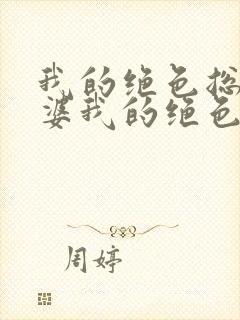 我的绝色总
婆我的绝色
周婷